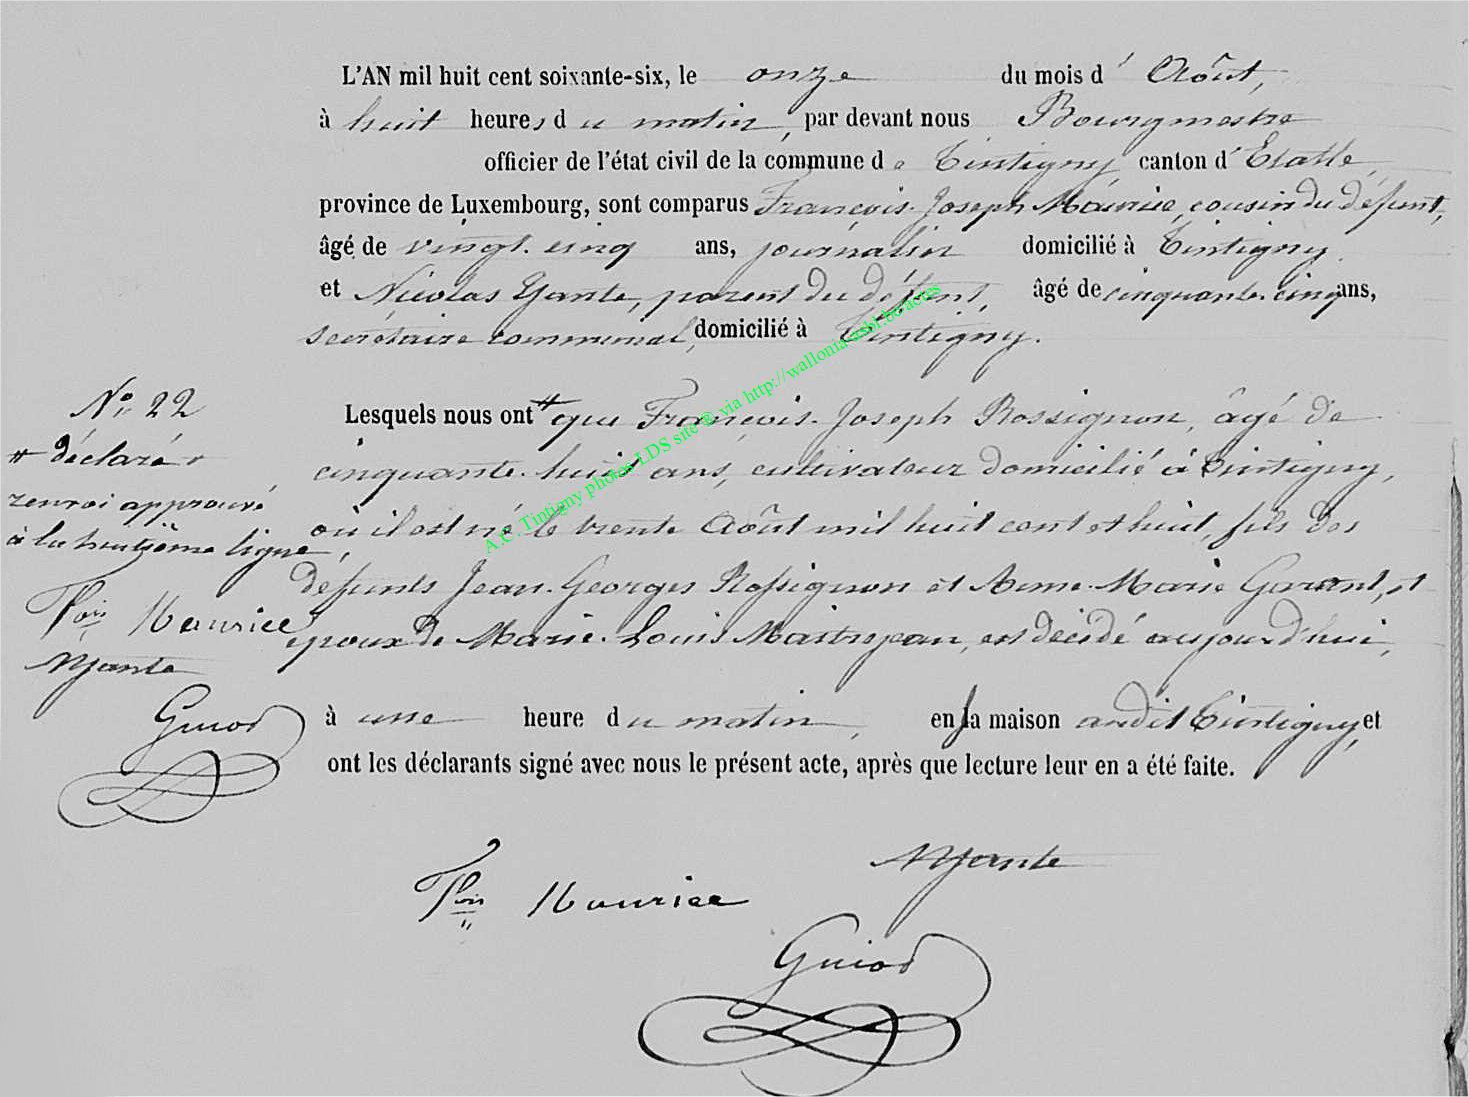 L'AN mil huit cent soixante-six, le onze du mois d' Août,
à huit heures du matin, par devant nous Bourgmestre
officier de l'état civil de la commune de Tintigny canton d'Etalle,
province de Luxembourg, sont comparus François-Joseph Maurice, cousin du défunt,
âgé de vingt-cinq ans, journalier domicilié à Tintigny
et Nicolas Yante, parent du défunt, âgé de cinquante-cinq ans,
secrétaire communal, domicilié à Tintigny.
N° 22
# déclaré
renvoi approuvé
à la huitième ligne,
Fçois Maurice
NYante
Guiot
Lesquels nous ont # que François-Joseph Rossignon, âgé de
cinquante-huit ans, cultivateur domicilié à Tintigny,
où il est né le trente Août mil huit cent et huit, fils des
défunts Jean-Georges Rossignon et Anne-Marie et
époux de Marie-Louis Maitrejean, est décédé aujourd'hui,
à une heure du matin, en sa maison audit Tintigny, et
ont les déclarants signé avec nous le présent acte, après que lecture leur en a été faite.
NYante
Fçois Maurice
Guiot
A.C. Tintigny photos LDS site ® via http://wallonia-asbl.be/actes